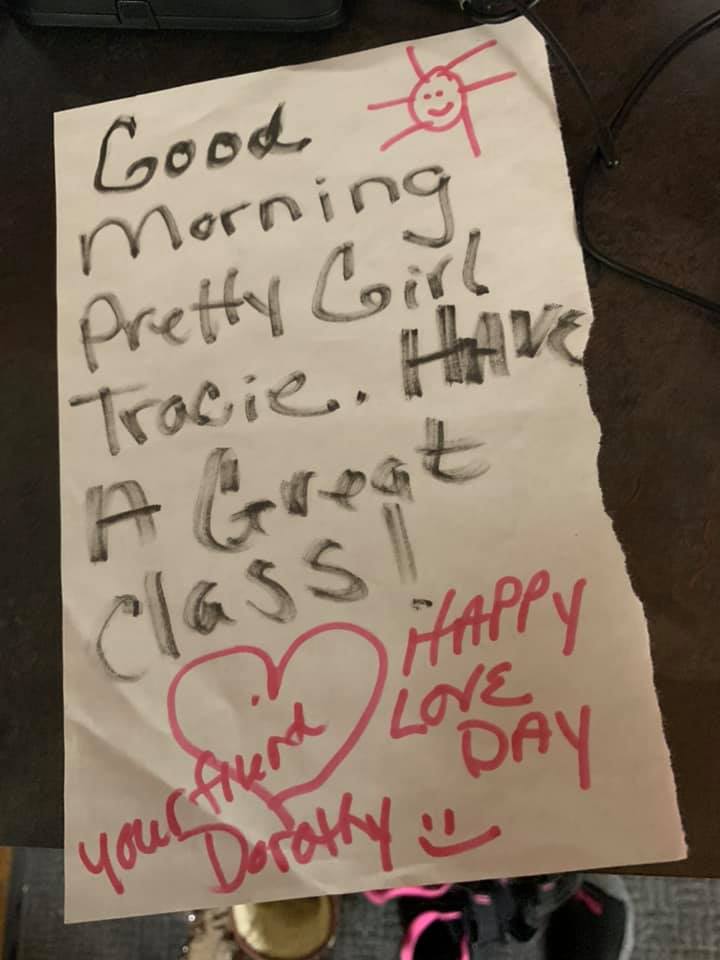 Good
Morning
Pretty Girl
Tracie. HAVE
A Great
class!
HAPPY
LOVE
DAY
your friend
Dorothy